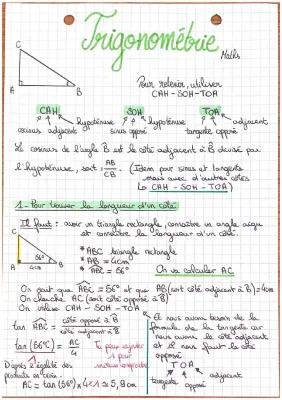 Trigonométrie
Maths
C
A
B
Pour retenir, utiliser
CAH - SOH - TOA
CAH SOH TOA
hypoténuse hypoténuse adjacent
cosinus adjacent sinus opposé tangente opposé
Le cosinus de l'angle B est le côté adjacent à B divisé par
l'hypoténuse, soit : AB/CB. (Idem pour sinus et tangente
mais avec d'autres côtés
↳ CAH - SOH - TOA)
1 - Pour trouver la longueur d'un côté
Il faut : avoir un triangle rectangle, connaître un angle aigu
et connaître la longueur d'un côté.
C
56°
A 4cm B
* ABC triangle rectangle
* AB = 4cm
* ABC = 56°
On va calculer AC
On sait que ABC = 56° et que AB (soit côté adjacent à B) = 4cm
On cherche AC (soit côté opposé à B)
On utilise CAH - SOH - TOA
tan ABC = côté opposé à B / côté adjacent à B
tan (56°) = AC / 4
1
D'après l'égalité des
produits en croix.
AC = tan (56°) × 4 ÷ 1 ≈ 5,9 cm
Tu peux ajouter
1 pour
mieux comprendre
Et nous avons besoin de la
formule de la tangente car
nous avons le côté adjacent
et il nous faut le côté
opposé
TOA
tangente opposé adjacent